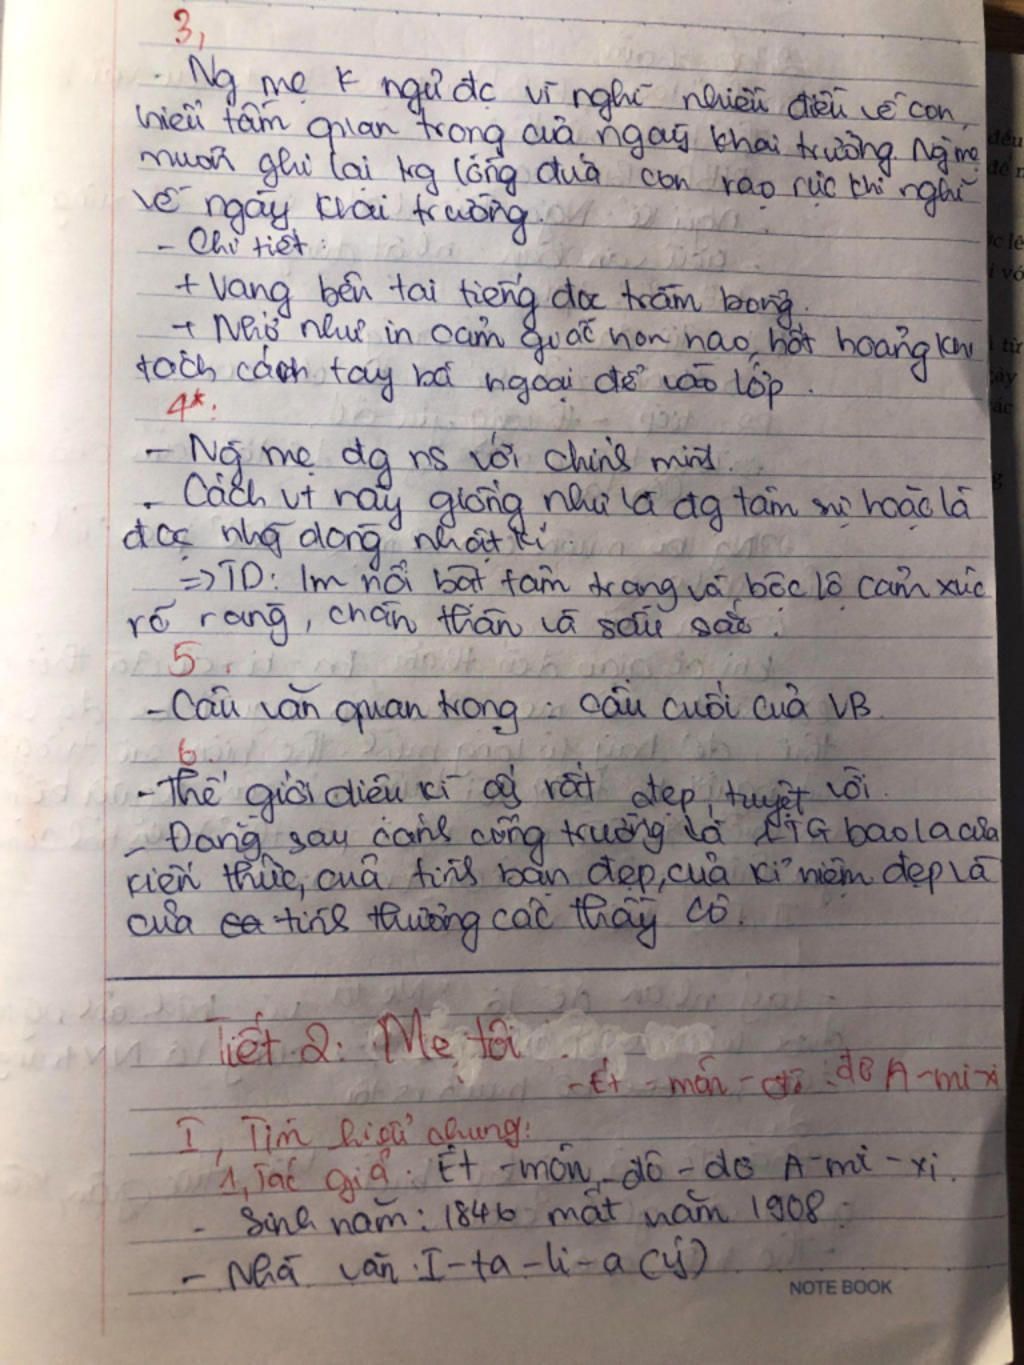 3,
- Ng mẹ k ngủ đc vì nghĩ nhiều điều về con,
hiểu tầm quan trọng của ngày khai trường. Ng mẹ
muốn ghi lại trg lòng đứa con rạo rực khi nghĩ
về ngày khai trường.
- Chi tiết:
+ Vang bên tai tiếng đọc trầm bổng.
+ Nhớ như in cảm giác non nao, hốt hoảng khi
tách cánh tay bà ngoại để vào lớp.
4*:
- Ng mẹ đg ns với chính mình.
- Cách vt này giống như là đg tâm sự hoặc là
đọc nhg dòng nhật kí.
=> TD: lm nổi bật tâm trạng và bộc lộ cảm xúc
rõ ràng, chân thần và sâu sắc.
5.
- Câu văn quan trọng: câu cuối của VB
6
- Thế giới diệu kì ấy rất đẹp, tuyệt vời.
- Đằng sau cánh cổng trường là TG bao la của
kiến thức, của tình bạn đẹp, của kỉ niệm đẹp và
của tình thương các thầy cô.
Tiết 2: Mẹ tôi
- Ét - môn - đô đơ A-mi-xi
I, Tìm hiểu chung:
1, Tác giả: Ét - môn - đô - đơ A-mi-xi.
- Sinh năm: 1846 mất năm 1908
- Nhà văn I-ta-li-a (Ý)
NOTE BOOK